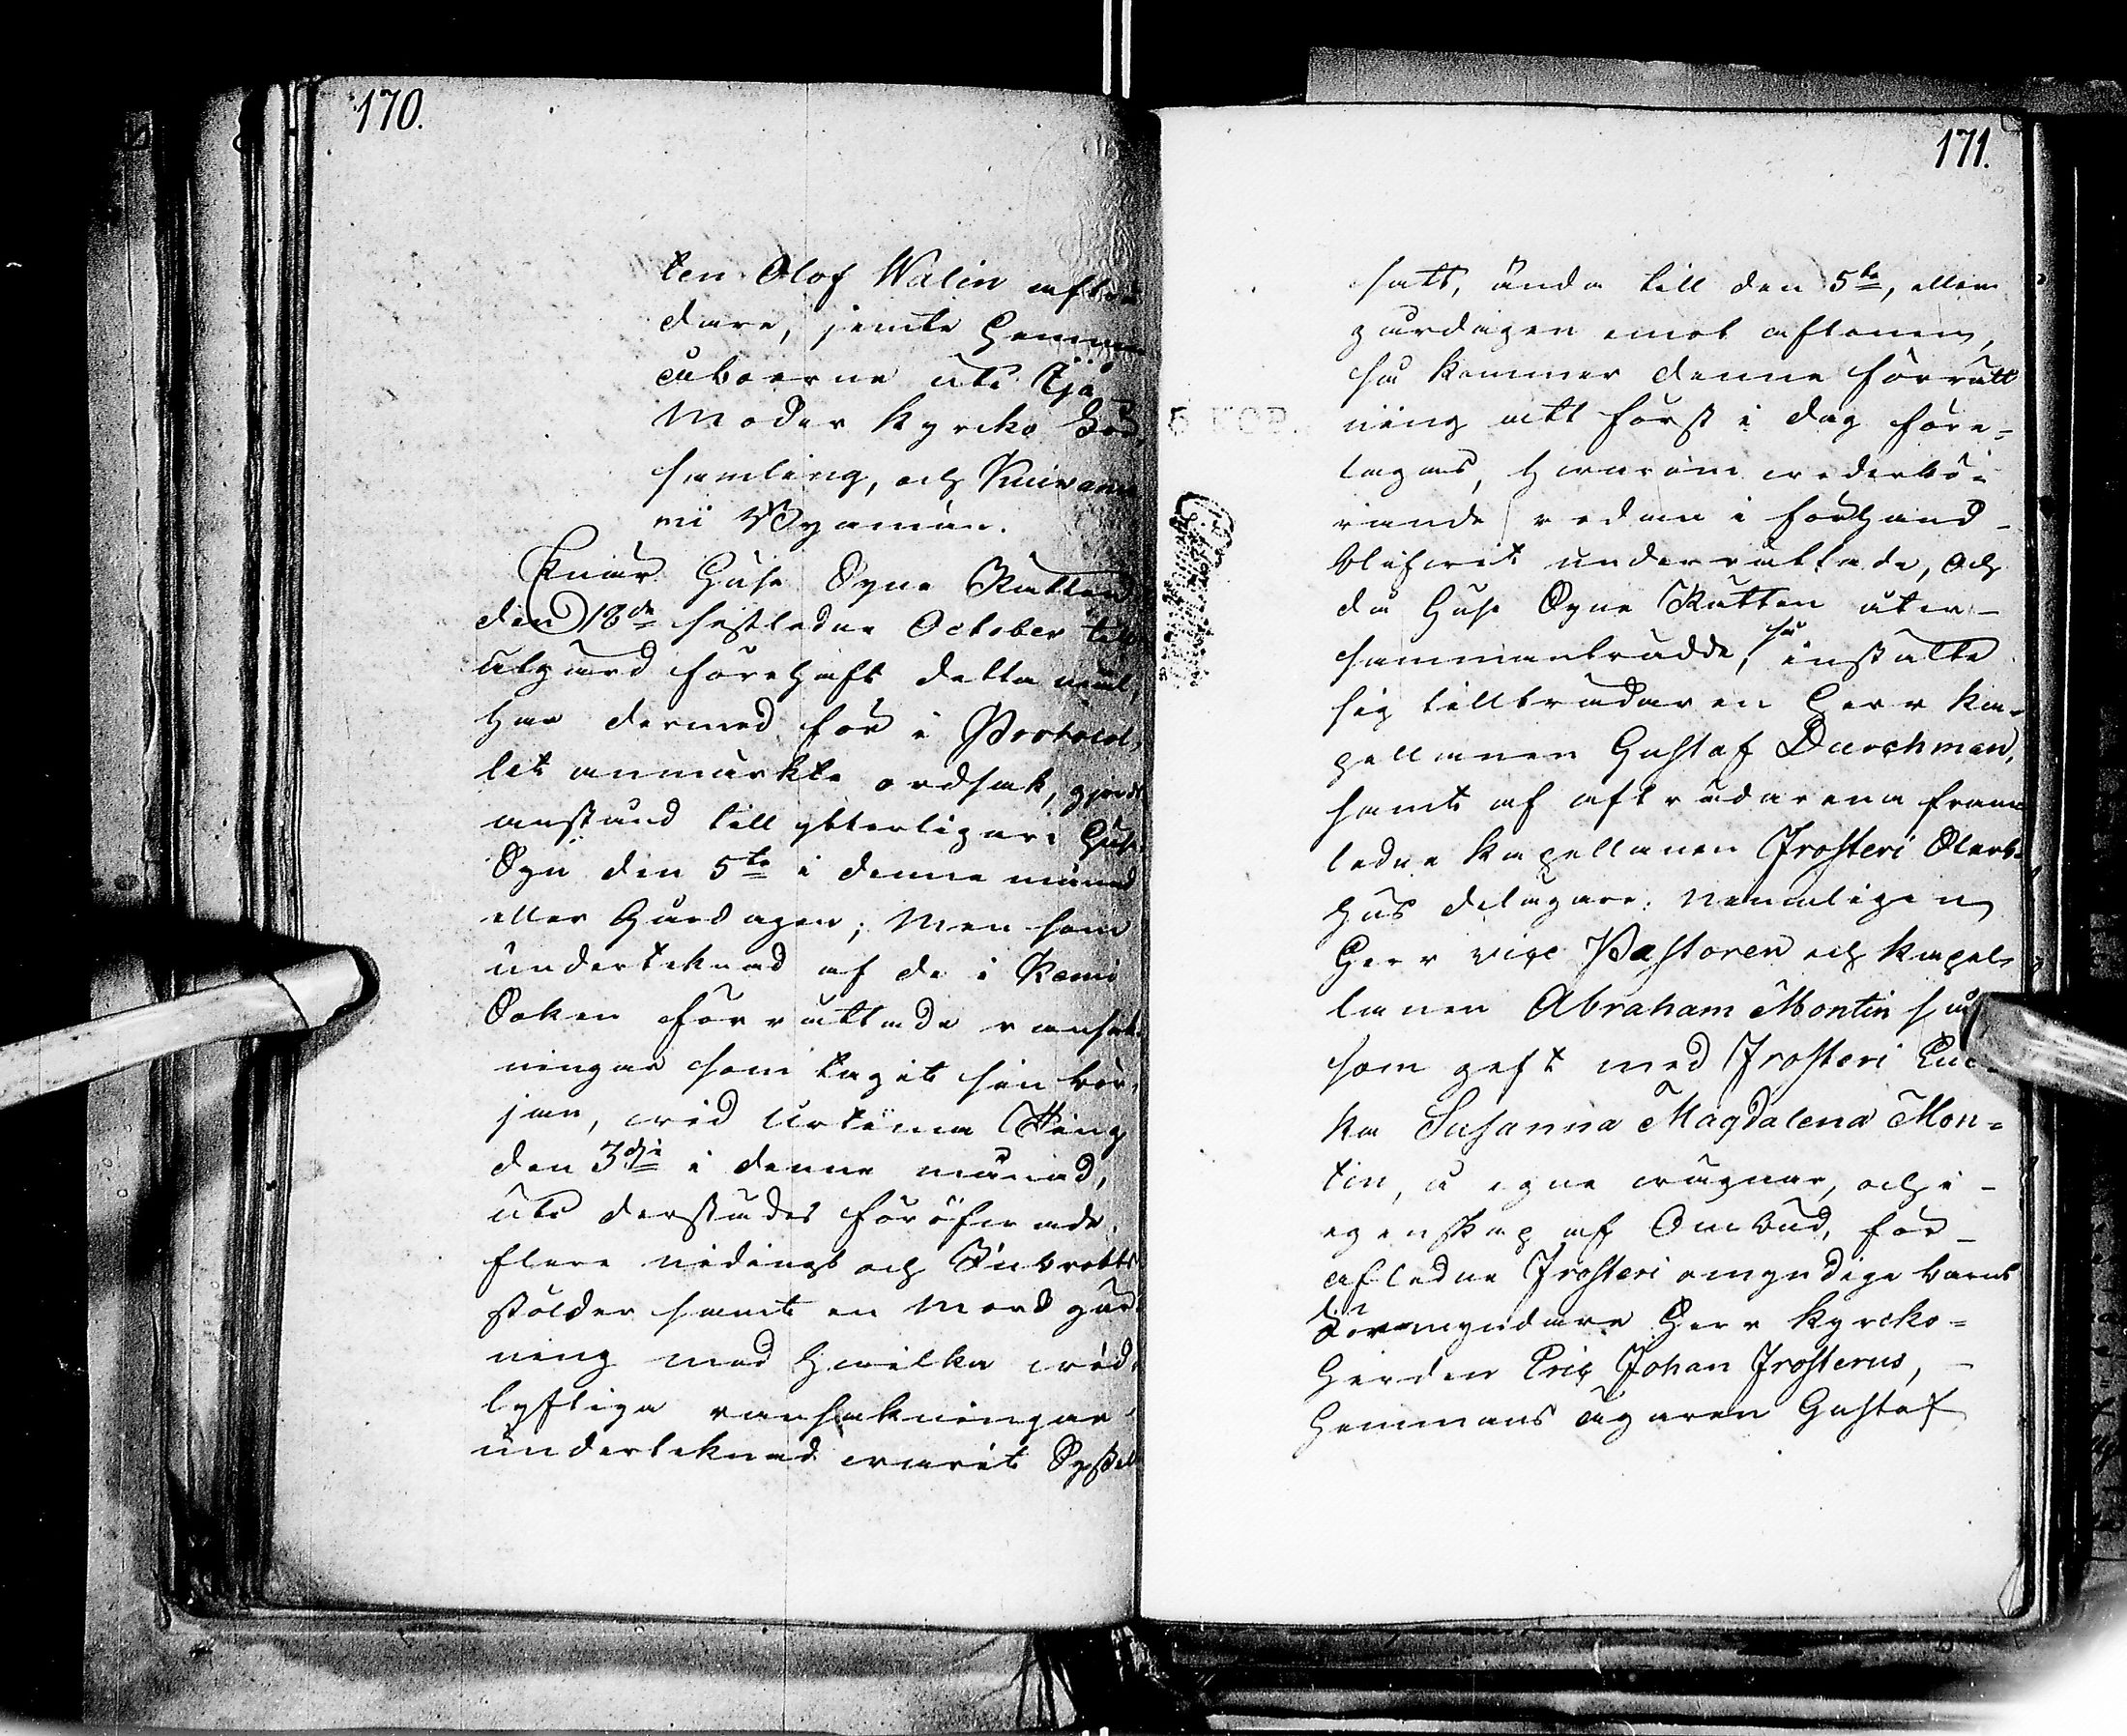 170.
ten Olof Walin afträ
dare, jemte Hemmans
åboerne uti Ijå
Moder Kyrcko För,
samling, och Kuivanie
mi Byamän.
Enär Huse Syne Rätten
den 18de sistledne October till
utgärd förehaft detta mål,
har dermed för i Protocol,
let anmärkte ordsak, gjordt
anstånd till ytterligare Huse
Syn den 5te i denne månad
eller Gårdagen; Men som
undertecknad af de i Kemi
Soken förrättade ransak
ningar som tagit sin bör,
jan, wid Urtima Ting
den 3dje i denne månad,
uti derstädes föröfwade
flere nidings och Inbrotts
stölder samt en Mord gär
ning med hwilka wid,
lyftiga ransakningar
undertecknad warit Syssel
171.
satt, ända till den 5te, eller
gårdagen emot aftonen,
så kommer denne förrätt
ning att först i dag före=
tagas, hwarom wederbö=
rande redan i förhand-
blifwit underrättade, och
då Huse Syne Rätten åter-
sammanträdde, så instälte
sig tillträdaren Herr Ka-
pellanen Gustaf Durchman,
samt af afträdarena fram
ledne Kapellanen Frosteri Sterb-
hus delägare: nemmligen
Herr vice Pastoren och Kapel-
lanen Abraham Montin så
som gift med Frosteri Enc
ka Susanna Magdalena Mon=
tin, å egne wägnar, och i-
egenskap af Ombud, för-
afledne Frosteri omyndige barns
Förmyndare Herr Kyrcko=
Herden Eric Johan Frosterus,
Hemmans ägaren Gustaf